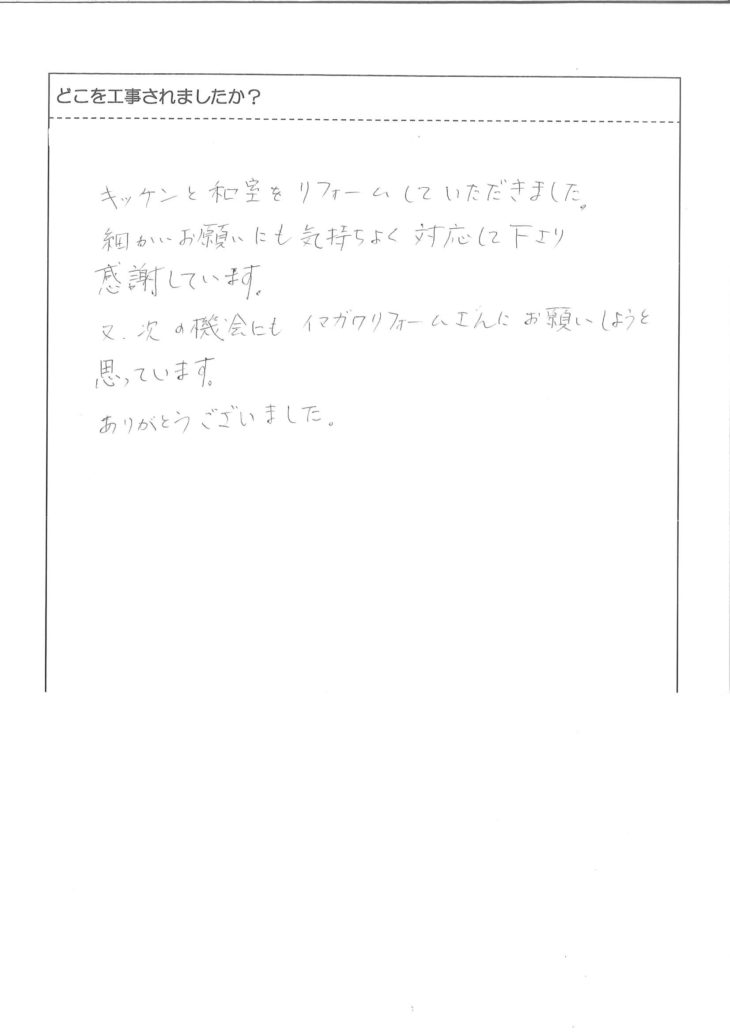 どこを工事されましたか？
キッチンと和室をリフォームしていただきました。
細かいお願いにも気持ちよく対応して下さり
感謝しています。
又、次の機会にもイマガワリフォームさんにお願いしようと
思っています。
ありがとうございました。